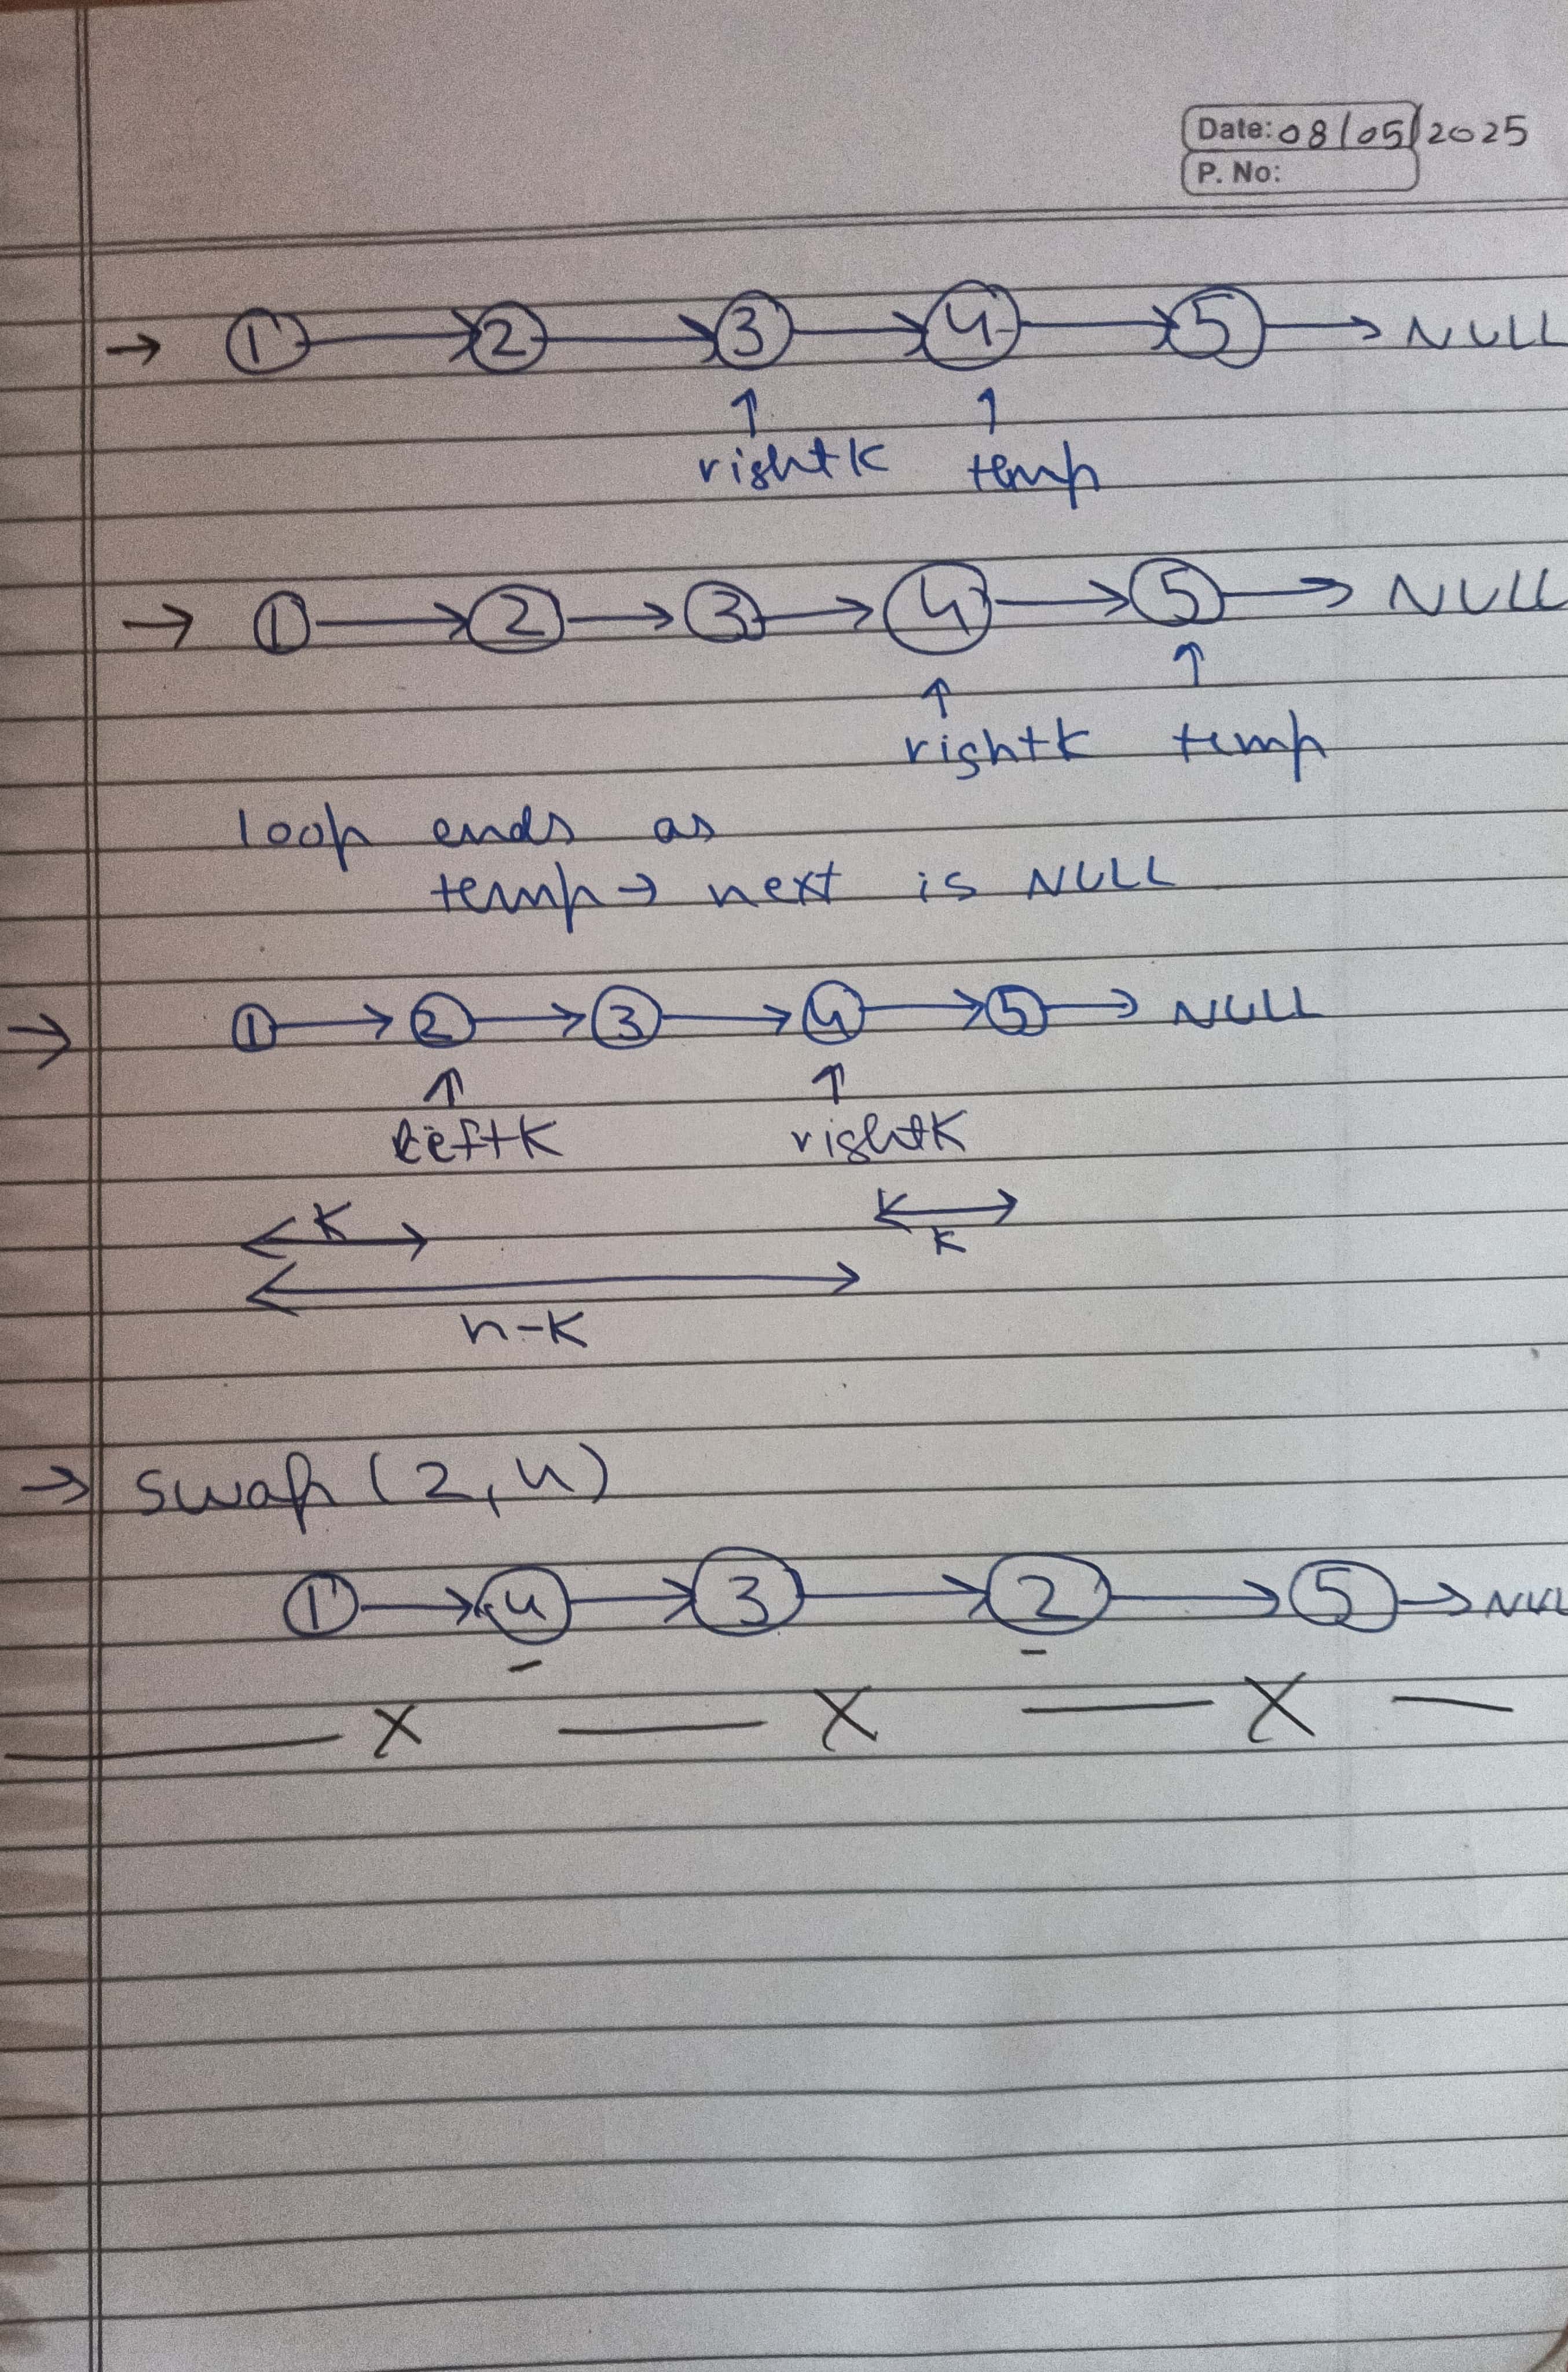 Date: 08/05/2025
P. No:
→ 1 → 2 → 3 → 4 → 5 → NULL
↑ ↑
rightk temp
→ 1 → 2 → 3 → 4 → 5 → NULL
↑ ↑
rightk temp
loop ends as
temp → next is NULL
→ 1 → 2 → 3 → 4 → 5 → NULL
↑ ↑
leftK rightK
K K
n-K
→ swap (2, 4)
1 → 4 → 3 → 2 → 5 → NULL
— X — X — X —